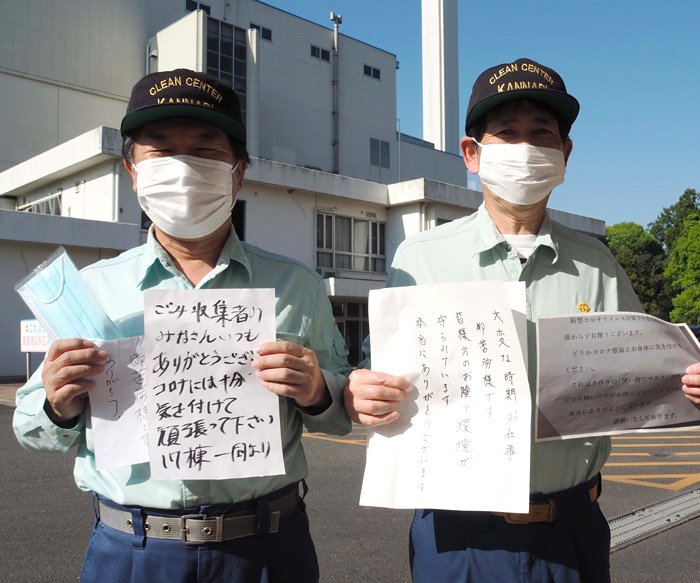 CLEAN CENTER
KANNABI
CLEAN CENTER
KANNABI
ごみ収集者の
みなさんいつも
ありがとうござい
コロナには十分
気を付けて
頑張って下さい
17棟一同より
御苦労様です
ありがとう
大変な時期お仕事
御苦労様です
皆様方のお陰で環境が
守られています
本当にありがとうございます
新型コロナウイルス対策
係わらず自粛うございます。
どうかコロナ感染とお身体に気を付けて
ください。
これは手作りの「使い捨てマスク